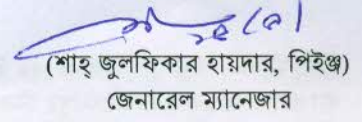 (শাহ্ জুলফিকার হায়দার, পিইঞ্জ)
জেনারেল ম্যানেজার